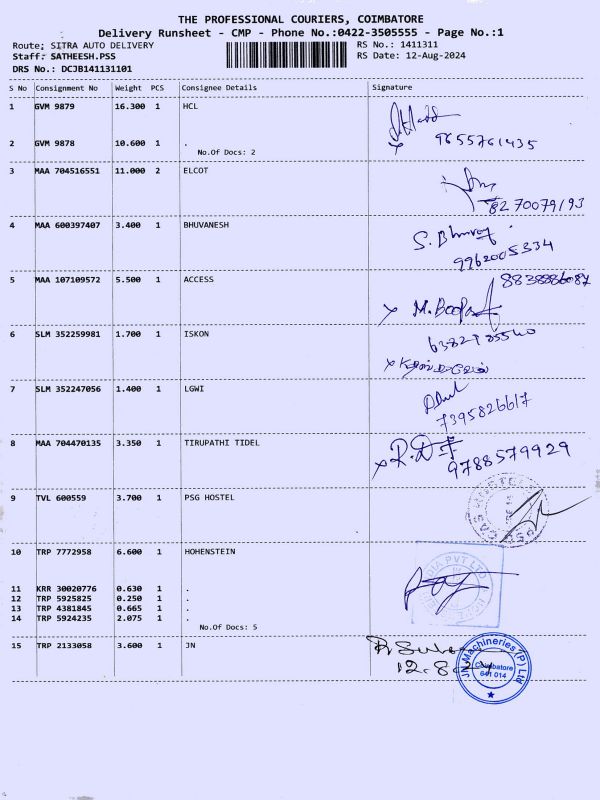 THE PROFESSIONAL COURIERS, COIMBATORE
Delivery Runsheet - CMP - Phone No.:0422-3505555 - Page No.:1
Route: SITRA AUTO DELIVERY RS No.: 1411311
Staff: SATHEESH.PSS RS Date: 12-Aug-2024
DRS No.: DCJB141131101
S No Consignment No Weight PCS Consignee Details Signature
1 GVM 9879 16.300 1 HCL
2 GVM 9878 10.600 1 . 9655761435
No.Of Docs: 2
3 MAA 704516551 11.000 2 ELCOT
8270079193
4 MAA 600397407 3.400 1 BHUVANESH
S. Bhuvaj
9962005334
5 MAA 107109572 5.500 1 ACCESS 8838886087
x M.Boopa
6 SLM 352259981 1.700 1 ISKON
7 SLM 352247056 1.400 1 LGWI
7395826617
8 MAA 704470135 3.350 1 TIRUPATHI TIDEL
x R.D
9788579929
9 TVL 600559 3.700 1 PSG HOSTEL
10 TRP 7772958 6.600 1 HOHENSTEIN
INDIA PVT LTD
11 KRR 30020776 0.630 1 .
12 TRP 5925825 0.250 1 .
13 TRP 4381845 0.665 1 .
14 TRP 5924235 2.075 1 .
No.Of Docs: 5
15 TRP 2133058 3.600 1 JN
12.8
JN Machineries (P) Ltd
Coimbatore
641 014